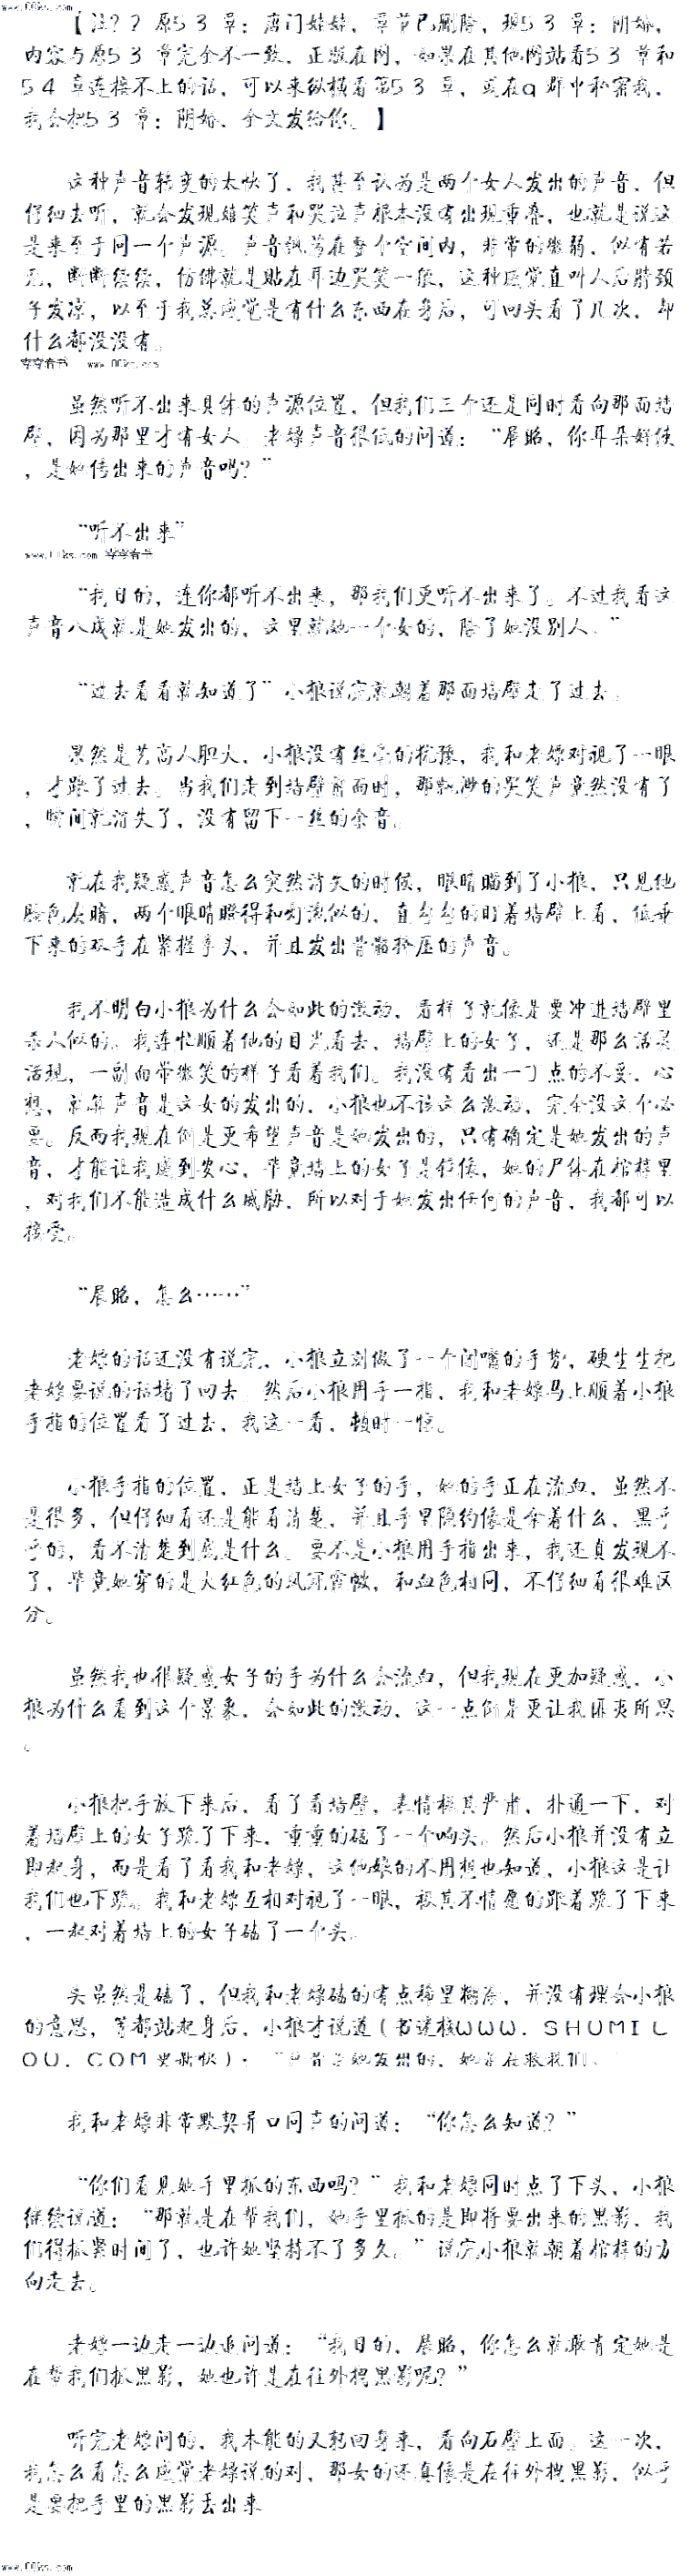 www.00ks.com
【注？？原５３章：离门娃娃，章节已删除，现５３章：阴婚，
内容与原５３章完全不一致，正版在网，如果在其他网站看５３章和
５４章连接不上的话，可以来纵横看第５３章，或在ｑ群中私密我，
我会把５３章：阴婚、全文发给你。】
这种声音转变的太快了，我甚至认为是两个女人发出的声音，但
仔细去听，就会发现嬉笑声和哭泣声根本没有出现重叠，也就是说这
是来至于同一个声源。声音飘荡在整个空间内，非常的微弱，似有若
无，断断续续，仿佛就是贴在耳边哭笑一般，这种感觉直叫人后脖颈
子发凉，以至于我总感觉是有什么东西在身后，可回头看了几次，却
什么都没没有。
穿穿看书 www.00ks.com
虽然听不出来具体的声源位置，但我们三个还是同时看向那面墙
壁，因为那里才有女人。老嫖声音很低的问道：“晨昭，你耳朵好使
，是她传出来的声音吗？”
“听不出来”
www.00ks.com 穿穿看书
“我日的，连你都听不出来，那我们更听不出来了。不过我看这
声音八成就是她发出的，这里就她一个女的，除了她没别人。”
“过去看看就知道了”小狼说完就朝着那面墙壁走了过去。
果然是艺高人胆大，小狼没有丝毫的犹豫，我和老嫖对视了一眼
，才跟了过去。当我们走到墙壁前面时，那飘渺的哭笑声竟然没有了
，瞬间就消失了，没有留下一丝的余音。
就在我疑惑声音怎么突然消失的时候，眼睛瞄到了小狼，只见他
脸色灰暗，两个眼睛瞪得和灯泡似的，直勾勾的盯着墙壁上看，低垂
下来的双手在紧握拳头，并且发出骨骼挤压的声音。
我不明白小狼为什么会如此的激动，看样子就像是要冲进墙壁里
杀人似的。我连忙顺着他的目光看去，墙壁上的女子，还是那么活灵
活现，一副面带微笑的样子看着我们。我没有看出一丁点的不妥，心
想，就算声音是这女的发出的，小狼也不该这么激动，完全没这个必
要。反而我现在倒是更希望声音是她发出的，只有确定是她发出的声
音，才能让我感到安心，毕竟墙上的女子是镜像，她的尸体在棺椁里
，对我们不能造成什么威胁，所以对于她发出任何的声音，我都可以
接受。
“晨昭，怎么……”
老嫖的话还没有说完，小狼立刻做了一个闭嘴的手势，硬生生把
老嫖要说的话堵了回去。然后小狼用手一指，我和老嫖马上顺着小狼
手指的位置看了过去，我这一看，顿时一惊。
小狼手指的位置，正是墙上女子的手，她的手正在流血，虽然不
是很多，但仔细看还是能看清楚，并且手里隐约像是拿着什么，黑乎
乎的，看不清楚到底是什么。要不是小狼用手指出来，我还真发现不
了，毕竟她穿的是大红色的凤冠霞帔，和血色相同，不仔细看很难区
分。
虽然我也很疑惑女子的手为什么会流血，但我现在更加疑惑，小
狼为什么看到这个景象，会如此的激动，这一点倒是更让我匪夷所思
。
小狼把手放下来后，看了看墙壁，表情极其严肃，扑通一下，对
着墙壁上的女子跪了下来，重重的磕了一个响头。然后小狼并没有立
即起身，而是看了看我和老嫖，这他娘的不用想也知道，小狼这是让
我们也下跪。我和老嫖互相对视了一眼，极其不情愿的跟着跪了下来
，一起对着墙上的女子磕了一个头。
头虽然是磕了，但我和老嫖磕的有点稀里糊涂，并没有理会小狼
的意思，等都站起身后，小狼才说道（书迷楼ＷＷＷ．ＳＨＵＭＩＬ
ＯＵ．ＣＯＭ更新快）：“声音是她发出的，她是在帮我们。”
我和老嫖非常默契异口同声的问道：“你怎么知道？”
“你们看见她手里抓的东西吗？”我和老嫖同时点了下头，小狼
继续说道：“那就是在帮我们，她手里抓的是即将要出来的黑影，我
们得抓紧时间了，也许她坚持不了多久。”说完小狼就朝着棺椁的方
向走去。
老嫖一边走一边追问道：“我日的，晨昭，你怎么就敢肯定她是
在帮我们抓黑影，她也许是在往外拽黑影呢？”
听完老嫖问的，我本能的又転回身来，看向石壁上面。这一次，
我怎么看怎么感觉老嫖说的对，那女的还真像是在往外拽黑影，似乎
是要把手里的黑影丢出来
www.00ks.com